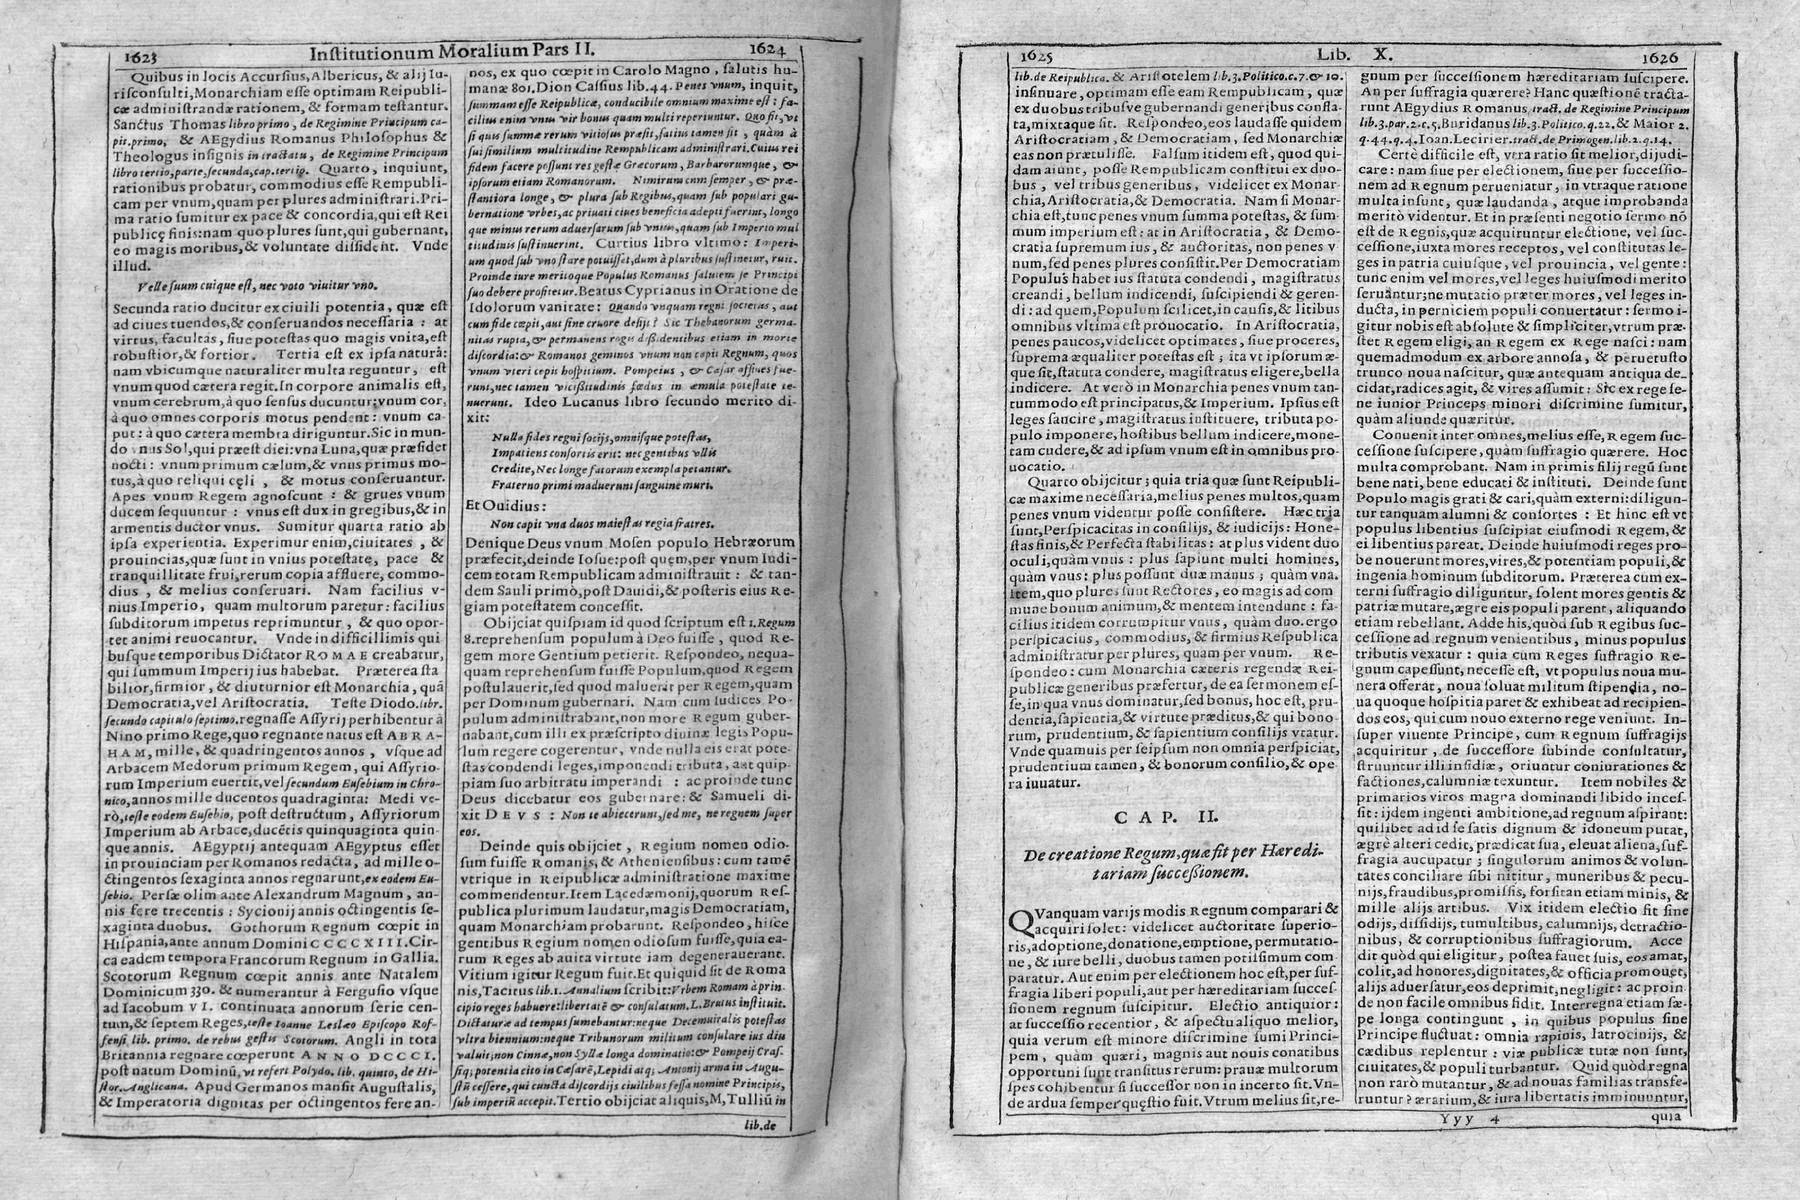 1623 Institutionum Moralium Pars II. 1624
Quibus in locis Accursius, Albericus, & alij Iu-
risconsulti, Monarchiam esse optimam Reipubli-
cæ administrandæ rationem, & formam testantur.
Sanctus Thomas libro primo, de Regimine Principum ca-
pit.primo, & AEgydius Romanus Philosophus &
Theologus insignis in tractatu, de Regimine Principum
libro tertio, parte, secunda, cap. tertio. Quarto, inquiunt,
rationibus probatur, commodius esse Rempubli-
cam per vnum, quam per plures administrari. Pri-
ma ratio sumitur ex pace & concordia, qui est Rei
publicę finis: nam quo plures sunt, qui gubernant,
eo magis moribus, & voluntate dissident. Vnde
illud.
Velle suum cuique est, nec voto viuitur vno.
Secunda ratio ducitur ex ciuili potentia, quæ est
ad ciues tuendos, & conseruandos necessaria : at
virtus, facultas, siue potestas quo magis vnita, est
robustior, & fortior. Tertia est ex ipsa naturâ:
nam vbicumque naturaliter multa reguntur, est
vnum quod cætera regit. In corpore animalis est,
vnum cerebrum, à quo sensus ducuntur: vnum cor,
à quo omnes corporis motus pendent : vnum ca-
put : à quo cætera membra diriguntur. Sic in mun-
do vnus Sol, qui præest diei: vna Luna, quæ præsidet
nocti : vnum primum cælum, & vnus primus mo-
tus, à quo reliqui cęli , & motus conseruantur.
Apes vnum Regem agnoscunt : & grues vnum
ducem sequuntur : vnus est dux in gregibus, & in
armentis ductor vnus. Sumitur quarta ratio ab
ipsa experientia. Experimur enim, ciuitates , &
prouincias, quæ sunt in vnius potestate, pace &
tranquillitate frui, rerum copia affluere, commo-
dius , & melius conseruari. Nam facilius v-
nius Imperio, quam multorum paretur: facilius
subditorum impetus reprimuntur , & quo opor-
tet animi reuocantur. Vnde in difficillimis qui
busque temporibus Dictator ROMAE creabatur,
qui summum Imperij ius habebat. Præterea sta
bilior, firmior , & diuturnior est Monarchia , quã
Democratia, vel Aristocratia. Teste Diodo.libr.
secundo capitulo septimo. regnasse Assyrij perhibentur à
Nino primo Rege, quo regnante natus est ABRA-
HAM, mille, & quadringentos annos , vsque ad
Arbacem Medorum primum Regem, qui Assyrio-
rum Imperium euertit, vel secundum Eusebium in Chro-
nico, annos mille ducentos quadraginta: Medi ve-
rò, teste eodem Eusebio, post destructum , Assyriorum
Imperium ab Arbace, ducẽtis quinquaginta quin-
que annis. AEgyptij antequam AEgyptus esset
in prouinciam per Romanos redacta, ad mille o-
ctingentos sexaginta annos regnarunt, ex eodem Eu-
sebio. Persæ olim ante Alexandrum Magnum , an-
nis fere trecentis : Sycionij annis octingentis se-
xaginta duobus. Gothorum Regnum cœpit in
Hispania, ante annum Domini CCCCXIII. Cir-
ca eadem tempora Francorum Regnum in Gallia.
Scotorum Regnum cœpit annis ante Natalem
Dominicum 330. & numerantur à Fergusio vsque
ad Iacobum VI. continuata annorum serie cen-
tum, & septem Reges, teste Ioanne Leslæo Episcopo Ros-
sensi, lib. primo. de rebus gestis Scotorum. Angli in tota
Britannia regnare cœperunt ANNO DCCCI.
post natum Dominũ, vt refert Polydo. lib. quinto, de Hi-
stor. Anglicana. Apud Germanos mansit Augustalis,
& Imperatoria dignitas per octingentos fere an-
nos, ex quo cœpit in Carolo Magno , salutis hu-
manæ 801. Dion Cassius lib. 44. Penes vnum, inquit,
summam esse Reipublicæ, conducibile omnium maxime est : fa-
cilius enim vnus vir bonus quam multi reperiuntur. Quo fit, vt
si quis summæ rerum vitiosus præsit, satius tamen sit , quàm à
sui similium multitudine Rempublicam administrari. Cuius rei
fidem facere possunt res gestæ Græcorum, Barbarorumque, &
ipsorum etiam Romanorum. Nimirum cum semper , & præ-
stantiora longe, & plura sub Regibus, quam sub populari gu-
bernatione vrbes, ac priuati ciues beneficia adepti fuerint, longo
que minus rerum aduersarum sub vnius, quam sub Imperio mul
titudinis sustinuerint. Curtius libro vltimo : Imperi-
um quod sub vno stare potuisset, dum à pluribus sustinetur, ruit.
Proinde iure meritoque Populus Romanus salutem se Principi
suo debere profitetur. Beatus Cyprianus in Oratione de
Idolorum vanitate: Quando vnquam regni societas , aut
cum fide cœpit, aut sine cruore desijt? Sic Thebanorum germa-
nitas rupta, & permanens rogis dissidentibus etiam in morte
discordia: & Romanos geminos vnum non capit Regnum, quos
vnum vteri cepit hospitium. Pompeius , & Cæsar affines fue-
runt, nec tamen vicissitudinis fœdus in æmula potestate te-
nuerunt. Ideo Lucanus libro secundo merito di-
xit:
Nulla fides regni socijs, omnisque potestas,
Impatiens consortis erit: nec gentibus vllis
Credite, Nec longe fatorum exempla petantur.
Fraterno primi maduerunt sanguine muri.
Et Ouidius:
Non capit vna duos maiestas regia fratres.
Denique Deus vnum Mosen populo Hebræorum
præfecit, deinde Iosue: post quem, per vnum Iudi-
cem totam Rempublicam administrauit : & tan-
dem Sauli primò, post Dauidi, & posteris eius Re-
giam potestatem concessit.
Obijciat quispiam id quod scriptum est 1. Regum
8. reprehensum populum à Deo fuisse , quod Re-
gem more Gentium petierit. Respondeo, nequa-
quam reprehensum fuisse Populum, quod Regem
postulauerit, sed quod maluerit per Regem, quam
per Dominum gubernari. Nam cum Iudices Po-
pulum administrabant, non more Regum guber-
nabant, cum illi ex præscripto diuinæ legis Popu-
lum regere cogerentur, vnde nulla eis erat pote-
stas condendi leges, imponendi tributa, aut quip-
piam suo arbitratu imperandi : ac proinde tunc
Deus dicebatur eos gubernare: & Samueli di-
xit DEVS : Non te abiecerunt, sed me, ne regnem super
eos.
Deinde quis obijciet , Regium nomen odio-
sum fuisse Romanis, & Atheniensibus: cum tamẽ
vtrique in Reipublicæ administratione maxime
commendentur. Item Lacedæmonij, quorum Res-
publica plurimum laudatur, magis Democratiam,
quam Monarchiam probarunt. Respondeo, hisce
gentibus Regium nomen odiosum fuisse, quia ea-
rum Reges ab auita virtute iam degenerauerant.
Vitium igitur Regum fuit. Et quiquid sit de Roma
nis, Tacitus lib. 1. Annalium scribit: Vrbem Romam à prin-
cipio reges habuere: libertatẽ & consulatum. L. Brutus instituit.
Dictaturæ ad tempus sumebantur: neque Decemuiralis potestas
vltra biennium: neque Tribunorum militum consulare ius diu
valuit: non Cinnæ, non Syllæ longa dominatio: & Pompeij Cras-
siq; potentia cito in Cæsarẽ, Lepidi atq; Antonij arma in Augu-
stũ cessere, qui cuncta discordijs ciuilibus fessa nomine Principis,
sub imperiũ accepit. Tertio obijciat aliquis, M, Tulliũ in
lib.de
1625 Lib. X. 1626
lib. de Republica. & Aristotelem lib. 3. Politico. c. 7. & 10.
insinuare, optimam esse eam Rempublicam , quæ
ex duobus tribusve gubernandi generibus confla-
ta, mixtaque sit. Respondeo, eos laudasse quidem
Aristocratiam , & Democratiam , sed Monarchiæ
eas non prætulisse. Falsum itidem est, quod qui-
dam aiunt, posse Rempublicam constitui ex duo-
bus , vel tribus generibus, videlicet ex Monar-
chia, Aristocratia, & Democratia. Nam si Monar-
chia est, tunc penes vnum summa potestas, & sum-
mum imperium est: at in Aristocratia , & Demo-
cratia supremum ius , & auctoritas, non penes v
num, sed penes plures consistit. Per Democratiam
Populus habet ius statuta condendi, magistratus
creandi , bellum indicendi, suscipiendi & geren-
di: ad quem, Populum scilicet, in causis, & litibus
omnibus vltima est prouocatio. In Aristocratia,
penes paucos, videlicet optimates, siue proceres,
suprema æqualiter potestas est ; ita vt ipsorum æ-
que sit, statuta condere, magistratus eligere, bella
indicere. At verò in Monarchia penes vnum tan-
tummodo est principatus, & Imperium. Ipsius est
leges sancire, magistratus instituere, tributa po-
pulo imponere, hostibus bellum indicere, mone-
tam cudere, & ad ipsum vnum est in omnibus pro-
uocatio.
Quarto obijcitur ; quia tria quæ sunt Reipubli-
cæ maxime necessaria, melius penes multos, quam
penes vnum videntur posse consistere. Hæc tria
sunt, Perspicacitas in consilijs, & iudicijs: Hone-
stas finis, & Perfecta stabilitas : at plus vident duo
oculi, quàm vnus : plus sapiunt multi homines,
quàm vnus: plus possunt duæ manus ; quàm vna.
Item, quo plures sunt Rectores , eo magis ad com
mune bonum animum, & mentem intendunt : fa-
cilius itidem corrumpitur vnus , quàm duo. ergo
perspicacius , commodius, & firmius Respublica
administratur per plures, quam per vnum. Re-
spondeo: cum Monarchia cæteris regendæ Rei-
publicæ generibus præfertur, de ea sermonem es-
se, in qua vnus dominatur, sed bonus, hoc est, pru-
dentia, sapientia, & virtute præditus, & qui bono-
rum, prudentium, & sapientium consilijs vtatur.
Vnde quamuis per seipsum non omnia perspiciat,
prudentium tamen , & bonorum consilio, & ope-
ra iuuatur.
CAP. II.
De creatione Regum, quæ fit per Hæredi-
tariam successionem.
QVanquam varijs modis Regnum comparari &
acquiri solet: videlicet auctoritate superio-
ris, adoptione, donatione, emptione, permutatio-
ne , & iure belli , duobus tamen potissimum com
paratur. Aut enim per electionem hoc est, per suf-
fragia liberi populi, aut per hæreditariam succes-
sionem regnum suscipitur. Electio antiquior :
at successio recentior, & aspectu aliquo melior,
quia verum est minore discrimine sumi Princi-
pem , quàm quæri , magnis aut nouis conatibus
opportuni sunt transitus rerum: prauæ multorum
spes cohibentur si successor non in incerto sit. Vn-
de ardua semper quęstio fuit. Vtrum melius sit, re-
gnum per successionem hæreditariam suscipere.
An per suffragia quærere? Hanc quæstionẽ tracta-
runt AEgydius Romanus, tract. de Regimine Principum
lib. 3. par. 2. c. 5. Buridanus lib. 3. Politico. q. 22. & Maior 2.
q. 44. q. 4. Ioan. Lecirier. tract. de Primogen. lib. 2. q. 14.
Certè difficile est, vtra ratio sit melior, dijudi-
care : nam siue per electionem, siue per successio-
nem ad Regnum perueniatur, in vtraque ratione
multa insunt, quæ laudanda , atque improbanda
meritò videntur. Et in præsenti negotio sermo nõ
est de Regnis, quæ acquiruntur electione, vel suc-
cessione, iuxta mores receptos, vel constitutas le-
ges in patria cuiusque, vel prouincia , vel gente :
tunc enim vel mores, vel leges huiusmodi merito
seruãntur; ne mutatio præter mores , vel leges in-
ducta , in perniciem populi conuertatur : sermo i-
gitur nobis est absolute & simpliciter, vtrum præ-
stet Regem eligi, an Regem ex Rege nasci: nam
quemadmodum ex arbore annosa , & peruetusto
trunco noua nascitur, quæ antequam antiqua de-
cidat, radices agit, & vires assumit : Sic ex rege se-
ne iunior Princeps minori discrimine sumitur,
quàm aliunde quæritur.
Conuenit inter omnes, melius esse, Regem suc-
cessione suscipere , quàm suffragio quærere. Hoc
multa comprobant. Nam in primis filij regũ sunt
bene nati, bene educati & instituti. Deinde sunt
Populo magis grati & cari, quàm externi: diligun-
tur tanquam alumni & consortes : Et hinc est vt
populus libentius suscipiat eiusmodi Regem, &
ei libentius pareat. Deinde huiusmodi reges pro-
be nouerunt mores, vires, & potentiam populi, &
ingenia hominum subditorum. Præterea cum ex-
terni suffragio diliguntur, solent mores gentis &
patriæ mutare, ægre eis populi parent, aliquando
etiam rebellant. Adde his, quòd sub Regibus suc-
cessione ad regnum venientibus, minus populus
tributis vexatur : quia cum Reges suffragio Re-
gnum capessunt, necesse est, vt populus noua mu-
nera offerat, noua soluat militum stipendia, no-
ua quoque hospitia paret & exhibeat ad recipien-
dos eos, qui cum nouo externo rege veniunt. In-
super viuente Principe, cum Regnum suffragijs
acquiritur , de successore subinde consultatur,
struuntur illi insidiæ, oriuntur coniurationes &
factiones, calumniæ texuntur. Item nobiles &
primarios viros magna dominandi libido inces-
sit : ijdem ingenti ambitione, ad regnum aspirant:
quilibet ad id se satis dignum & idoneum putat,
ægrè alteri cedit, prædicat sua, eleuat aliena, suf-
fragia aucupatur ; singulorum animos & volun-
tates conciliare sibi nititur, muneribus & pecu-
nijs, fraudibus, promissis, forsitan etiam minis, &
mille alijs artibus. Vix itidem electio fit sine
odijs, dissidijs, tumultibus, calumnijs, detractio-
nibus, & corruptionibus suffragiorum. Acce
dit quòd qui eligitur, postea fauet suis, eos amat,
colit, ad honores, dignitates, & officia promouet,
alijs aduersatur, eos deprimit, negligit : ac proin
de non facile omnibus fidit. Interregna etiam sæ-
pe longa contingunt , in quibus populus sine
Principe fluctuat : omnia rapinis, latrocinijs, &
cædibus replentur : viæ publicæ tutæ non sunt,
ciuitates, & populi turbantur. Quid quòd regna
non rarò mutantur, & ad nouas familias transfe-
runtur? ærarium, & iura libertatis imminuuntur,
Yyy 4 quia